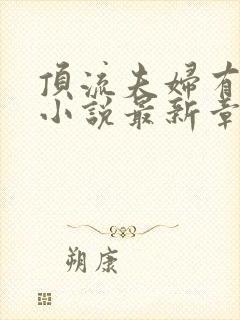 頂流夫婦有
小說最新章
朔康